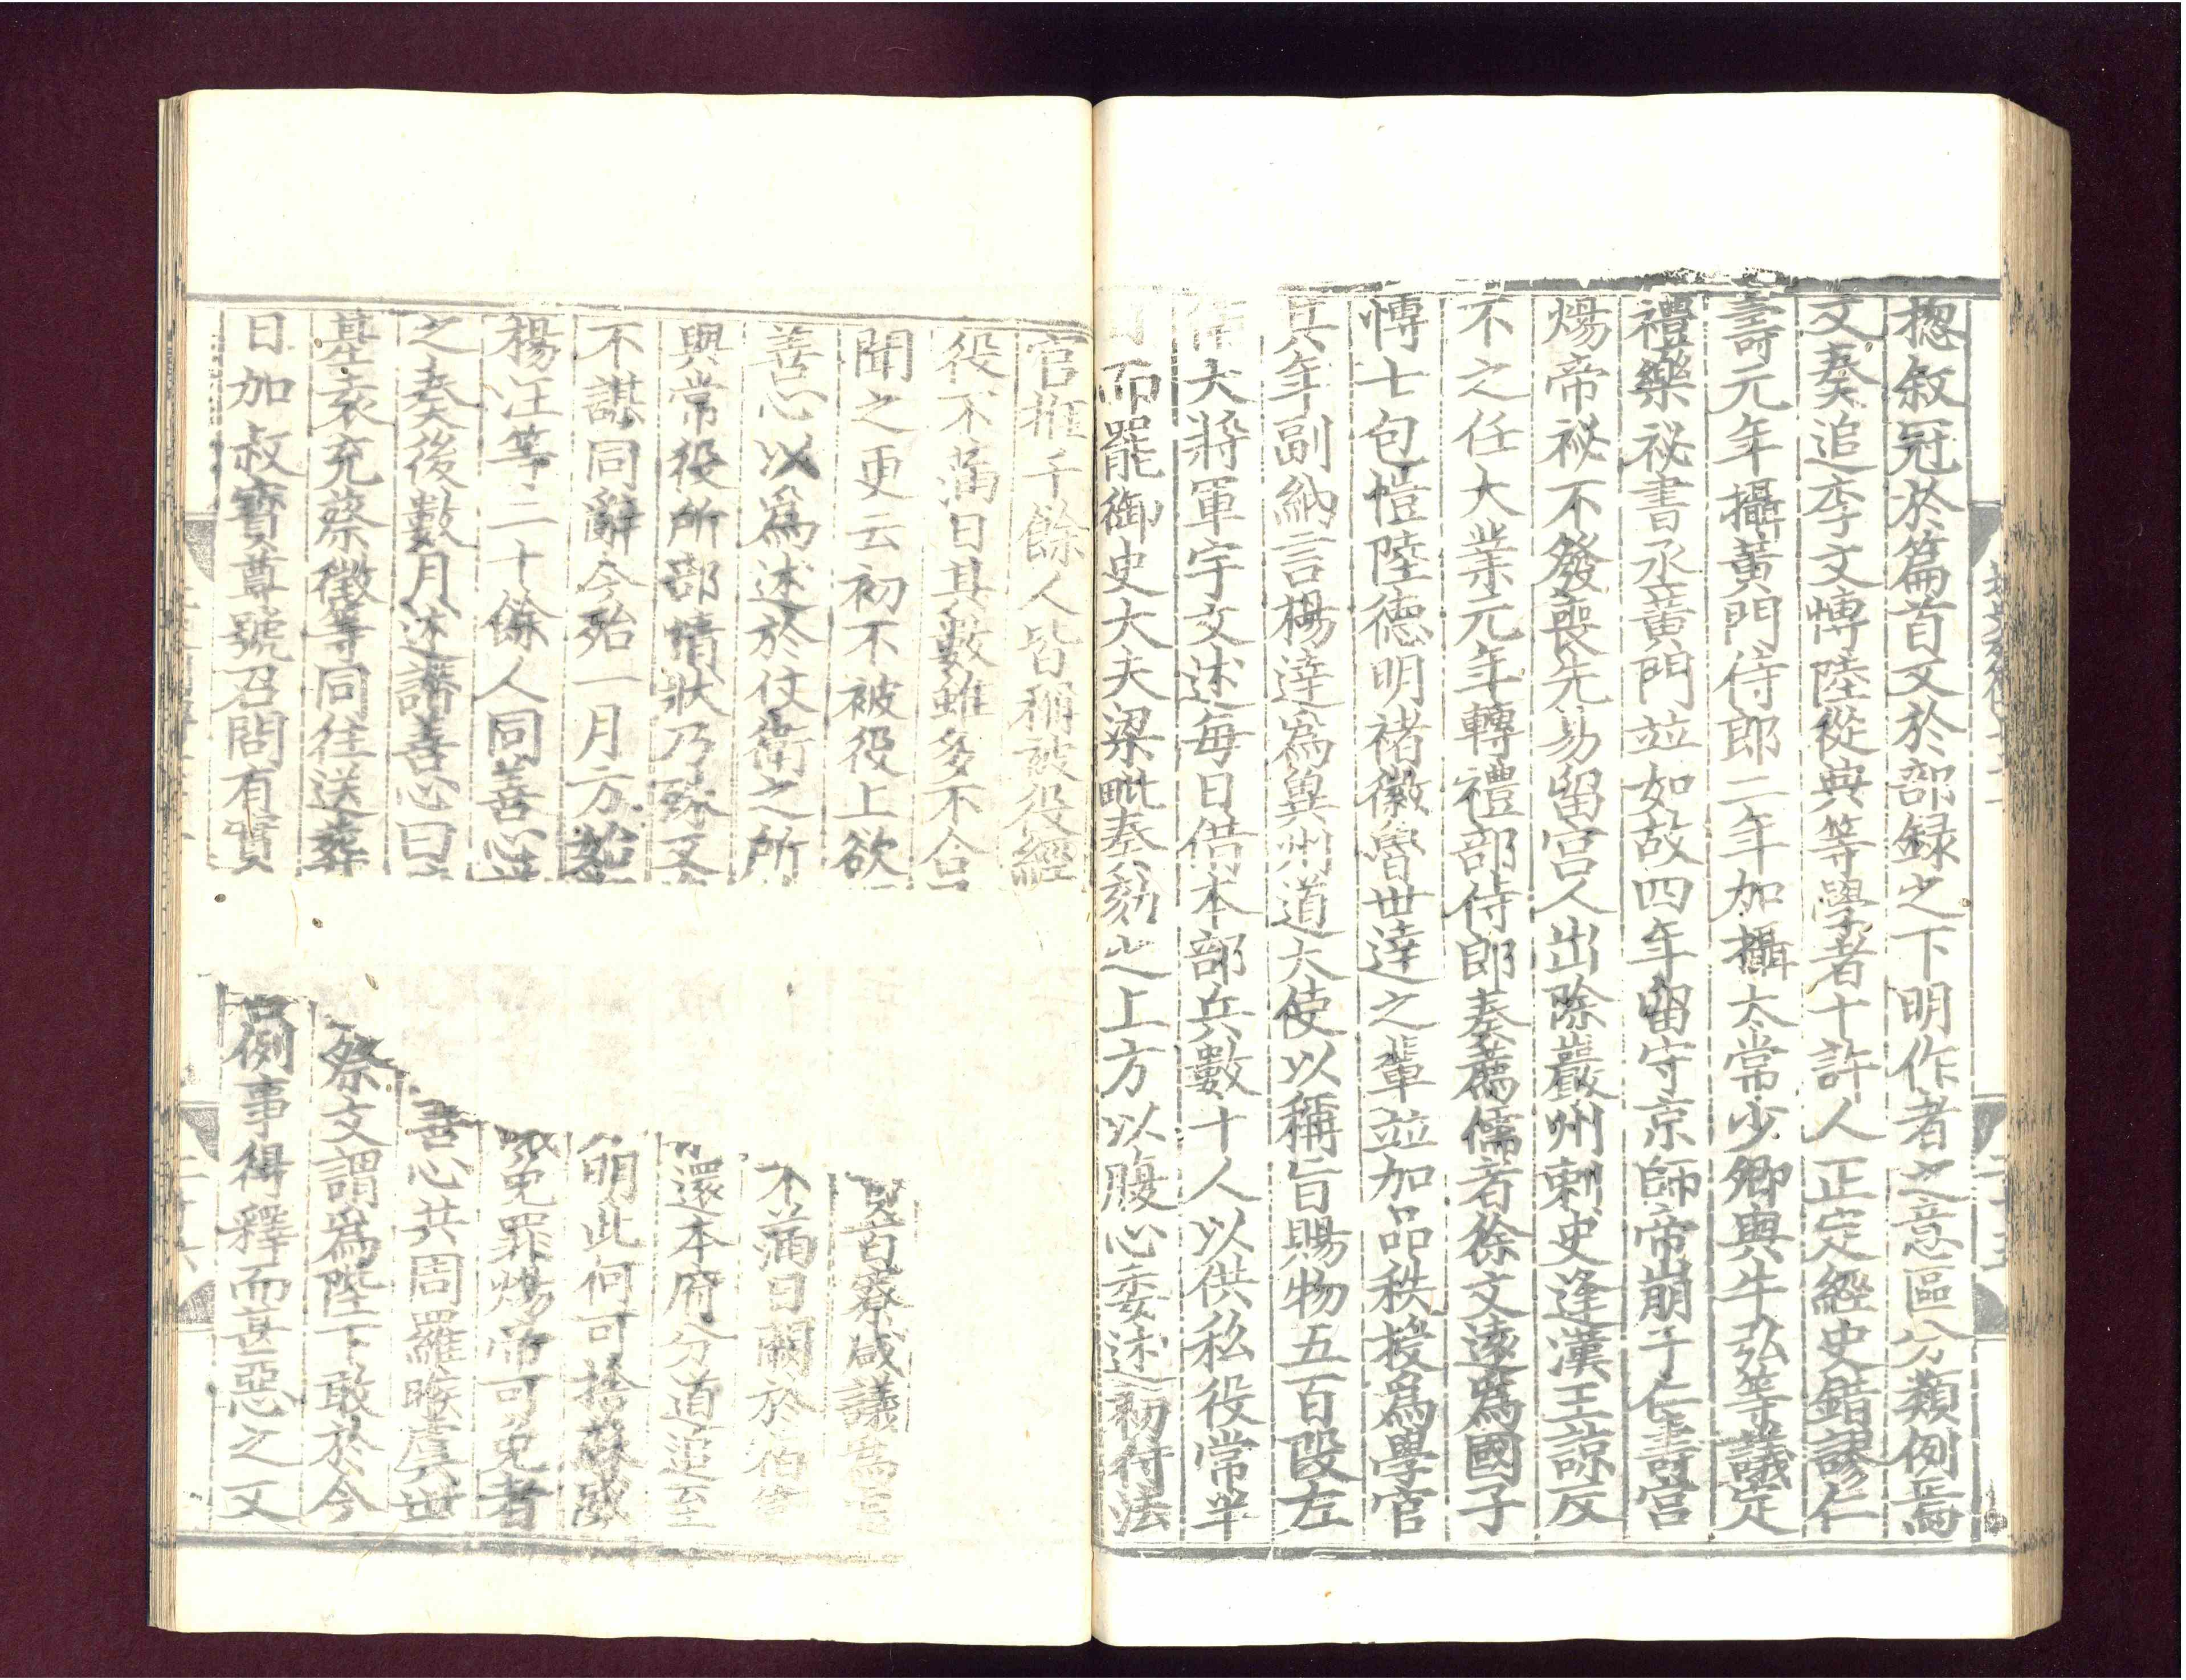 揔叙冠於篇首又於部録之下明作者之意區分類例焉
又奏追李文愽陸從典等學者十許人正定經史錯謬仁
壽元年攝黄門侍郎二年加攝太常少卿與牛弘等議定
禮樂祕書丞黄門並如故四年留守京師帝崩于仁壽宫
煬帝祕不發喪先易留宫人出除巖州刺史逢漢王諒反
不之任大業元年轉禮部侍郎奏薦儒者徐文遠爲國子
愽士包愷陸德明褚徽魯世達之輩並加品秩授爲學官
其年副納言楊達爲兾州道大使以稱旨賜物五百段左
衛大將軍宇文述每日借本部兵數十人以供私役常半
日而罷御史大夫梁毗奏劾之上方以腹心委述初付法
官推千餘人皆稱被役經
役不滿日其數雖多不合
聞之更云初不被役上欲 百寮咸議爲
善心以爲述於仗衛之所 不滿日闕於宿衛
與常役所部情狀乃殊又 還本府分道追至
不謀同辭今殆一月方 明此何可捨蘇威
楊汪等二十餘人同善心 免罪煬帝可免者
之奏後數月述譖善心曰 善心共周羅睺虞世
基袁充蔡徵等同往送葬 祭文謂爲陛下敢於今
日加叔寳尊號召問有實 例事得釋而甚惡之又